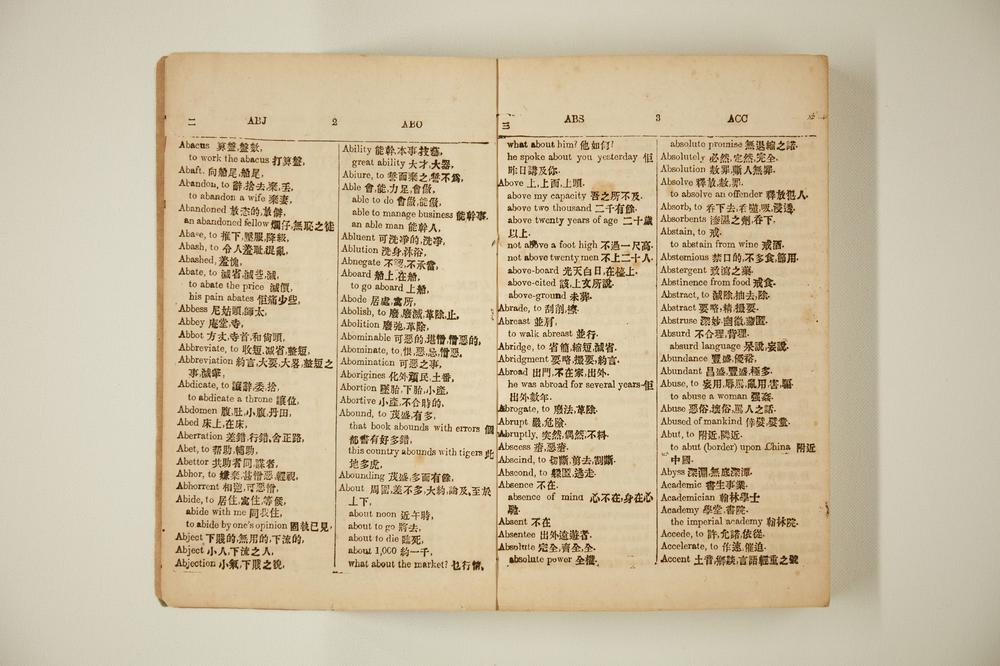 二 ABJ 2 ABO
Abacus 算盤,盤數,
to work the abacus 打算盤,
Abaft, 向船尾,船尾,
Abandon, to 辭,捨去,棄,丟,
to abandon a wife 棄妻,
Abandoned 放恣的,放僻,
an abandoned fellow 爛仔,無恥之徒
Abase, to 摧下,壓服,降級,
Abash, to 令人羞耻,混亂,
Abashed, 羞愧,
Abate, to 減省,減些,減,
to abate the price 減價,
his pain abates 佢痛少些,
Abbess 尼姑頭,師太,
Abbey 庵堂,寺,
Abbot 方丈,寺首,和尙頭,
Abbreviate, to 收短,減省,整短,
Abbreviation 約言,大要,大畧,整短之
事,減筆,
Abdicate, to 讓,辭,委,捨,
to abdicate a throne 讓位,
Abdomen 腹,肚,小腹,丹田,
Abed 床上,在床,
Aberration 差錯,行錯,舍正路,
Abet, to 帮助,輔助,
Abettor 共助者,同謀者,
Abhor, to 嫌棄,甚憎惡,輕視,
Abhorrent 相逆,可惡憎,
Abide, to 居住,寓住,等候,
abide with me 同我住,
to abide by one's opinion 固執已見,
Abject 下賤的,無用的,下流的,
Abject 小人,下流之人,
Abjection 小氣,下賤之貌,
Ability 能幹,本事,技藝,
great ability 大才,大器,
Abjure, to 誓而棄之,誓不爲,
Able 會,能,力足,會做,
able to do 會做,能做,
able to manage business 能幹事,
an able man 能幹人,
Abluent 可洗凈的,洗凈,
Ablution 洗身,沐浴,
Abnegate 不認,不承當,
Aboard 船上,在船,
to go aboard 上船,
Abode 居處,寓所,
Abolish, to 廢,廢滅,革除,止,
Abolition 廢弛,革除,
Abominable 可惡的,可憎惡的,
Abominate, to 恨,惡,忌,憎惡,
Abomination 可惡之事,
Aborigines 化外頑民,土番,
Abortion 墜胎,下胎,小產,
Abortive 小產,不合時的,
Abound, to 茂盛,有多,
that book abounds with errors 個
部書有好多錯,
this country abounds with tigers 此
地多虎,
Abounding 茂盛,多而有餘,
About 周圍,差不多,大約,論及,至於
上下,
about noon 近午時,
about to go 將去,
about to die 臨死,
about 1,000 約一千,
what about the market? 乜行情,
三 ABS 3 ACC
what about him? 他如何?
he spoke about you yesterday 佢
昨日講及你.
Above 上,上面,上頭.
above my capacity 吾之所不及.
above two thousand 二千有餘.
above twenty years of age 二十歲
以上.
not above a foot high 不過一尺高.
not above twenty men 不上二十人.
above-board 光天白日,在檯上.
above-cited 該,上文所說.
above-ground 未葬.
Abrade, to 刮削,擦.
Abreast 並肩.
to walk abreast 並行.
Abridge, to 省簡,縮短,減省.
Abridgment 要略,撮要,約言.
Abroad 出門,不在家,出外.
he was abroad for several years 佢
出外數年.
Abrogate, to 廢法,革除.
Abrupt 嚴,危險.
Abruptly, 突然,偶然,不料.
Abscess 瘡,惡瘡.
Abscind, to 切斷,剪去,割斷.
Abscond, to 躲匿,逃走.
Absence 不在.
absence of mind 心不在,身在心
馳.
Absent 不在
Absentee 出外遠遊者.
Absolute 定全,齊全,全.
absolute power 全權.
absolute promise 無退縮之諾.
Absolutely 必然,定然,完全.
Absolution 赦罪,斷人無罪.
Absolve 釋放,赦罪.
to absolve an offender 釋放犯人.
Absorb, to 吞下去,吸,浸透.
Absorbents 滲濕之劑,吞下.
Abstain, to 戒.
to abstain from wine 戒酒.
Abstemious 禁口的,不多食,節用.
Abstergent 致瀉之藥.
Abstinence from food 戒食.
Abstract, to 減除,抽去,除.
Abstract 要略,精,撮要.
Abstruse 深妙,幽微,奧匿.
Absurd 不合理,背理.
absurd language 呆說,妄說.
Abundance 豐盛,優裕.
Abundant 昌盛,豐盛,極多.
Abuse, to 妄用,辱罵,亂用,害,騙.
to abuse a woman 强姦.
Abuse 惡俗,壞俗,罵人之話.
Abused of mankind 倖嬖,嬖童.
Abut, to 附近,隣近.
to abut (border) upon China 附近
中國.
Abyss 深淵,無底深潭.
Academic 書生事業.
Academician 翰林學士
Academy 學堂,書院.
the imperial academy 翰林院.
Accede, to 許,允諾,依從.
Accelerate, to 作速,催迫.
Accent 土音,鄉談,言語輕重之號